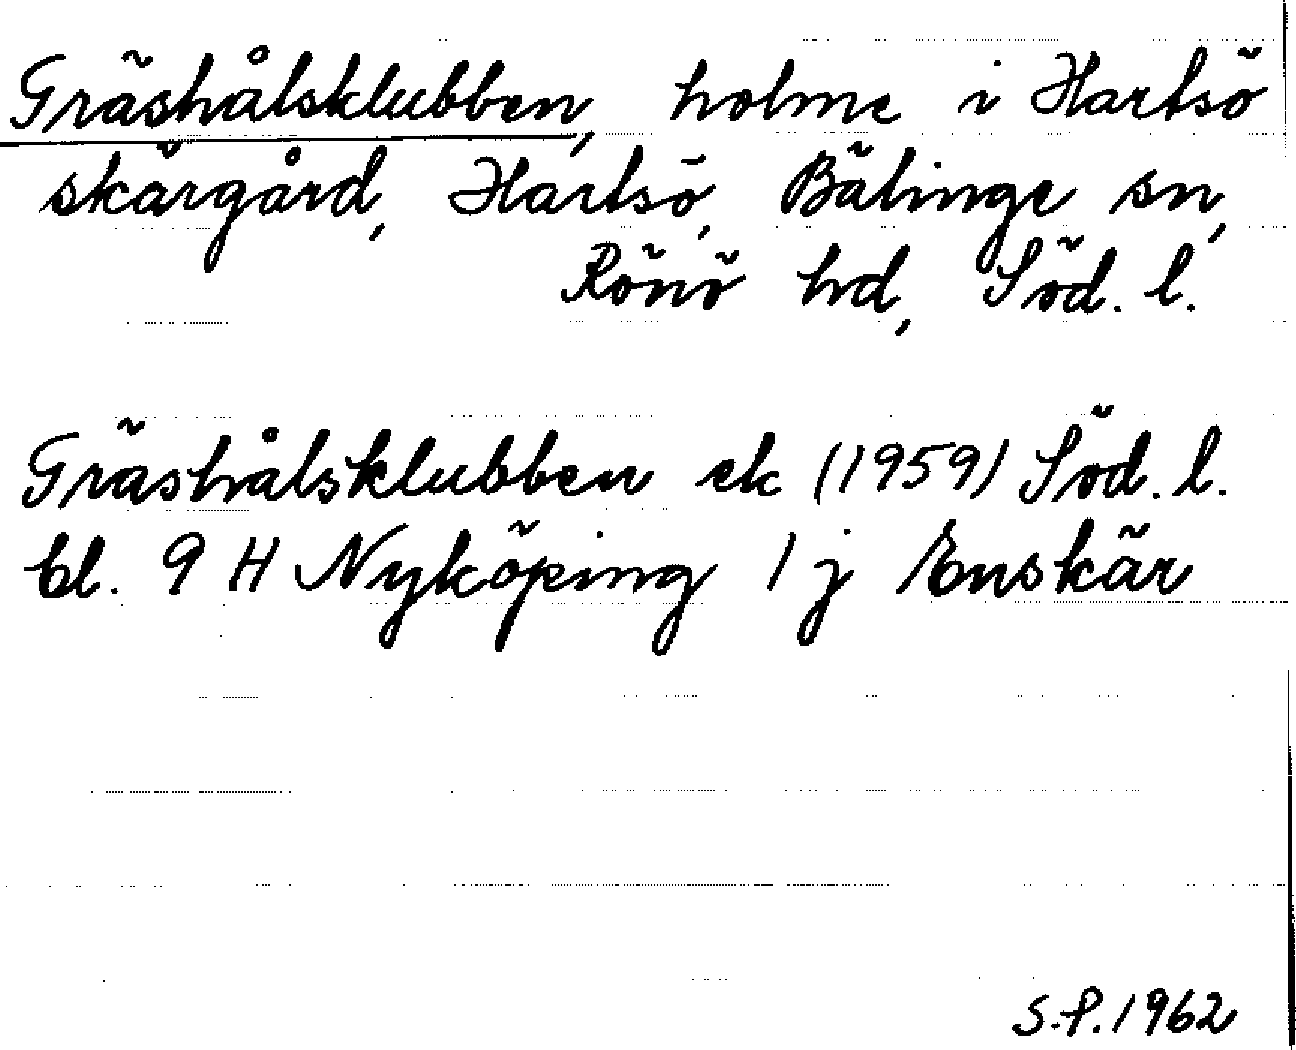 Gräshålsklubben, holme i Hartsö
skärgård, Hartsö, Bälinge sn,
Rönö hd, Söd. l.
Gräshålsklubben ek (1959) Söd. l.
bl. 9 H Nyköping 1 j Enskär
S.P. 1962